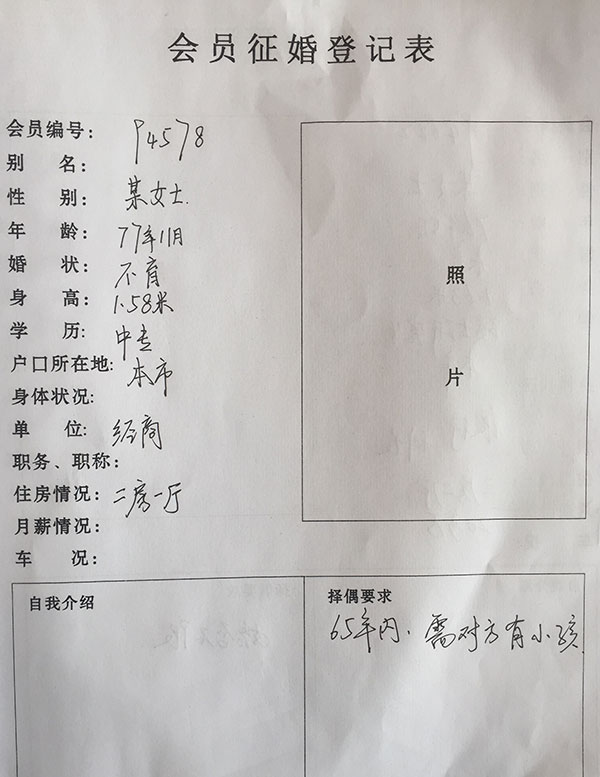 会员征婚登记表
会员编号： P4578
别 名：
性 别： 某女士.
年 龄： 77年11月
婚 状： 不育
身 高： 1.58米
学 历： 中专
户口所在地: 本市
身体状况:
单 位: 经商
职务、职称：
住房情况： 二房一厅
月薪情况：
车 况：
照
片
自我介绍
择偶要求
65年内. 需对方有小孩